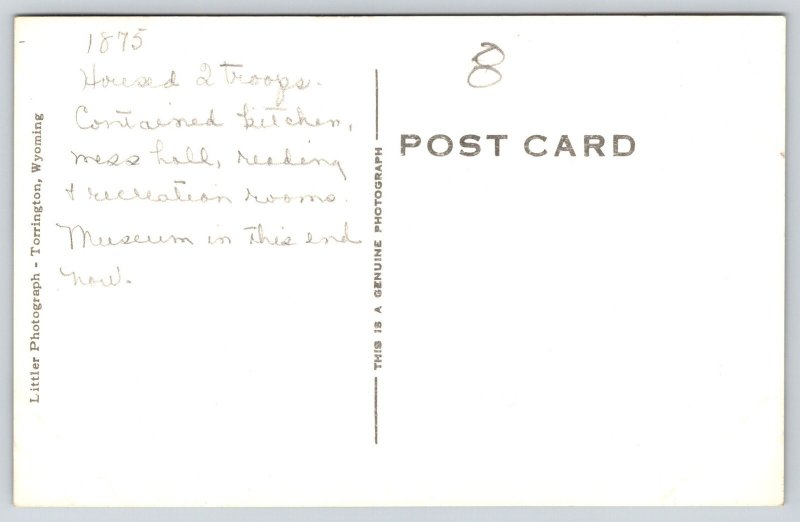 1875
Housed 2 troops.
Contained kitchen,
mess hall, reading
+ recreation rooms.
Museum in this end
now.
8
POST CARD
THIS IS A GENUINE PHOTOGRAPH
Littler Photograph - Torrington, Wyoming